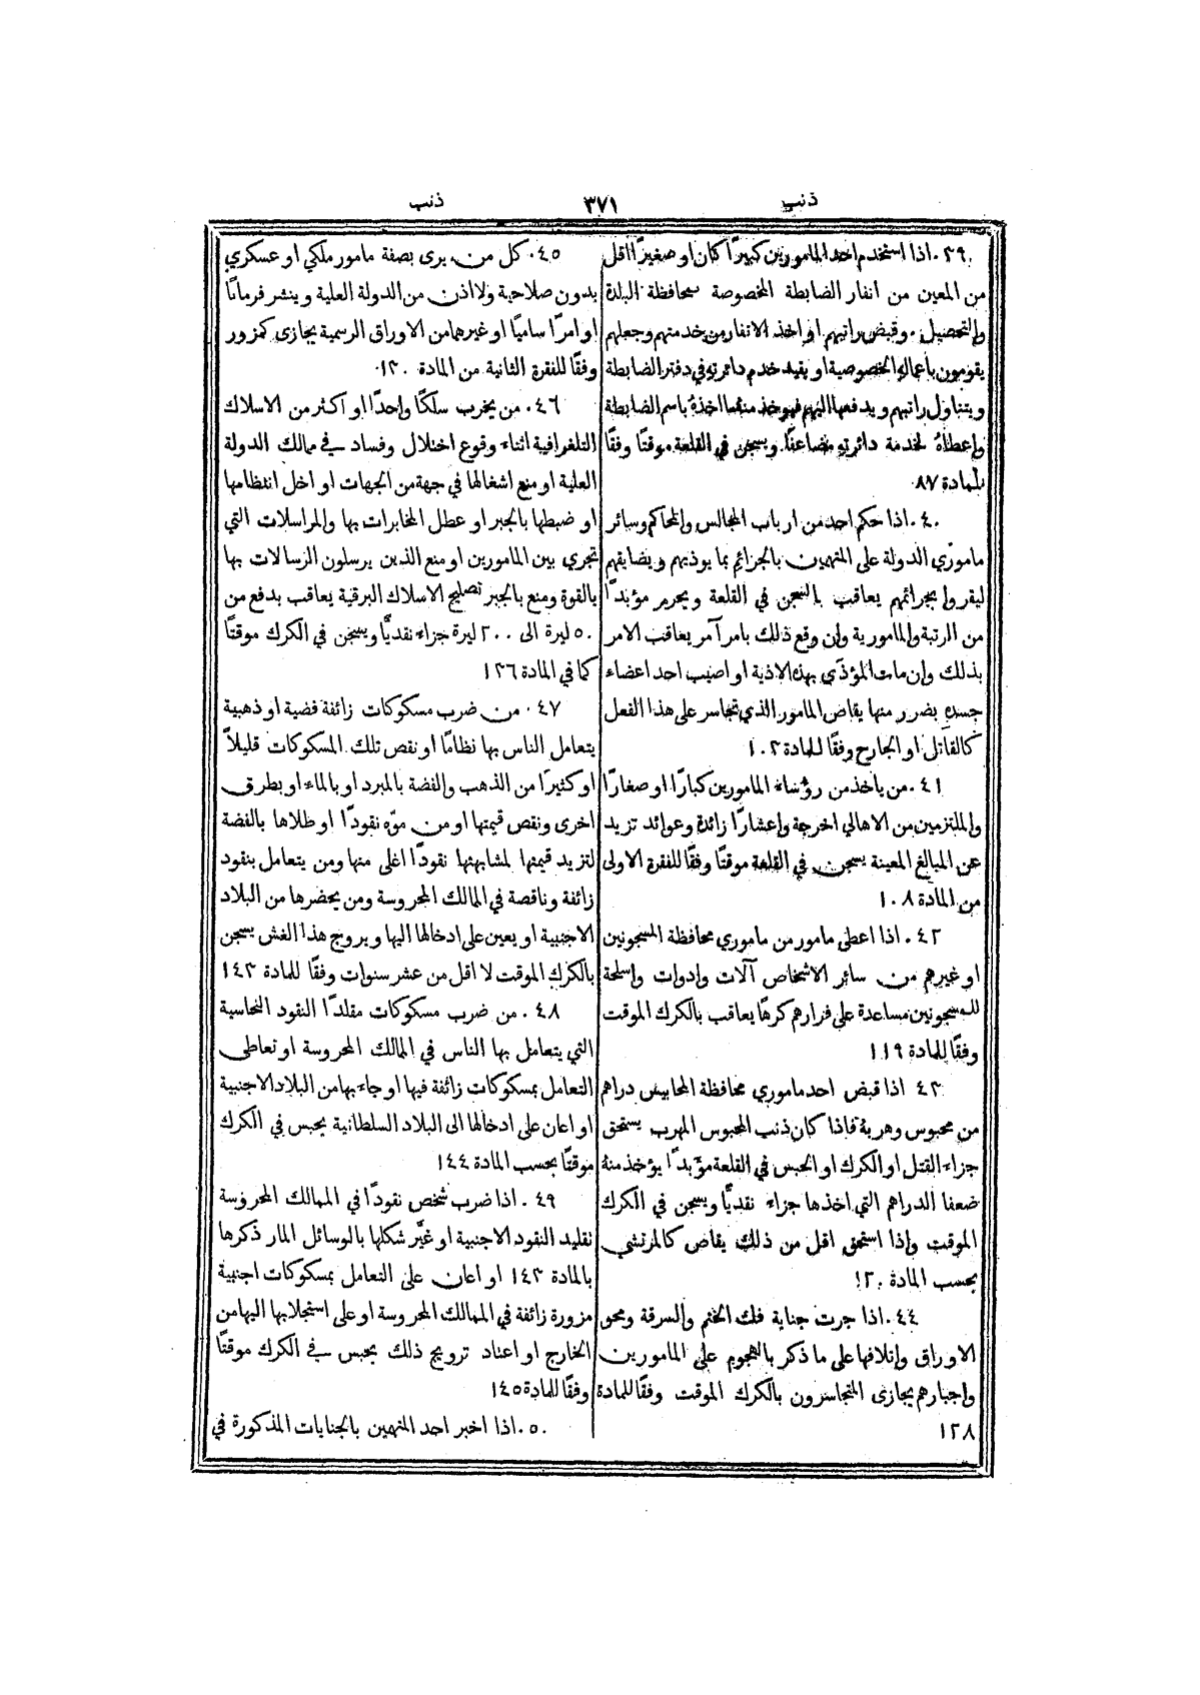 ذنب ٣٧١ ذنب
٣٩. اذا استخدم احد المامورين كبيرًا كان او صغيرًا اقل
من المعين من انفار الضابطة المخصوصة بمحافظة البلدة
والتحصيل. وقبض راتبهم او اخذ الانفار من خدمتهم وجعلهم
يقومون باعماله الخصوصية او يفيد خدم دائرته في دفتر الضابطة
ويتناول راتبهم ويدفعها اليهم فيوخذ منه ما اخذهُ باسم الضابطة
واعطاهُ لخدمة دائرته مضاعفًا ويسجن في القلعة موقتًا وفقًا
للمادة ٨٧
٤٠. اذا حكم احد من ارباب المجالس والمحاكم وسائر
ماموري الدولة على المتهمين بالجرائم بما يوذيهم ويضايقهم
ليقروا بجرائمهم يعاقب بالسجن في القلعة ويحرم مؤبدًا
من الرتبة والمامورية وان وقع ذلك بامر آمر يعاقب الامر
بذلك وان مات المؤذَى بهذه الاذية او اصيب احد اعضاء
جسده بضرر منها يقاص المامور الذي تجاسر على هذا الفعل
كالقاتل او الجارح وفقًا للمادة ١٠٣
٤١. من ياخذ من رؤساء المامورين كبارًا او صغارًا
والملتزمين من الاهالي اخرجة واعشارًا زائدة وعوائد تزيد
عن المبالغ المعينة يسجن في القلعة موقتًا وفقًا للفقرة الاولى
من المادة ١٠٨
٤٢. اذا اعطى مامور من ماموري محافظة المسجونين
او غيرهم من سائر الاشخاص آلات وادوات واسلحة
للمسجونين مساعدة على فرارهم كرهًا يعاقب بالكرك الموقت
وفقًا للمادة ١١٩
٤٣ اذا قبض احد ماموري محافظة المحابيس دراهم
من محبوس وهربة فاذا كان ذنب المحبوس المهرب يستحق
جزاء القتل او الكرك او الحبس في القلعة مؤبدًا يؤخذ منهُ
ضعفا الدراهم التي اخذها جزاء نقديًا ويسجن في الكرك
الموقت واذا استحق اقل من ذلك يقاص كالمرتشي
بحسب المادة ١٢٠
٤٤. اذا جرت جناية فك الختم والسرقة ومحو
الاوراق واتلافها على ما ذكر بالهجوم على المامورين
واجبارهم يجازى المتجاسرون بالكرك الموقت وفقًا للمادة
١٢٨
٤٥. كل من يرى بصفة مامور ملكي او عسكري
بدون صلاحية ولا اذن من الدولة العلية وينشر فرمانًا
او امرًا ساميًا او غيرها من الاوراق الرسمية يجازى كمزور
وفقًا للفقرة الثانية من المادة ١٣٠
٤٦. من يخرب سلكًا واحدًا او اكثر من الاسلاك
التلغرافية اثناء وقوع اختلال وفساد في ممالك الدولة
العلية او منع اشغالها في جهة من الجهات او اخل انتظامها
او ضبطها بالجبر او عطل المخابرات بها والمراسلات التي
تجري بين المامورين او منع الذين يرسلون الرسالات بها
بالقوة ومنع بالجبر تصليح الاسلاك البرقية يعاقب بدفع من
٥٠ ليرة الى ٢٠٠ ليرة جزاء نقديًا ويسجن في الكرك موقتًا
كما في المادة ١٣٦
٤٧. من ضرب مسكوكات زائفة فضية او ذهبية
يتعامل الناس بها نظامًا او نقص تلك المسكوكات قليلاً
او كثيرًا من الذهب والفضة بالمبرد او بالماء او بطرق
اخرى ونقص قيمتها او من موّه نقودًا او طلاها بالفضة
لتزيد قيمتها لمشابهتها نقودًا اغلى منها ومن يتعامل بنقود
زائفة وناقصة في المالك المحروسة ومن يحضرها من البلاد
الاجنبية او يعين على ادخالها اليها ويروج هذا الغش يسجن
بالكرك الموقت لا اقل من عشر سنوات وفقًا للمادة ١٤٣
٤٨. من ضرب مسكوكات مقلدًا النقود النحاسية
التي يتعامل بها الناس في المالك المحروسة او تعاطى
التعامل بمسكوكات زائفة فيها او جاء بها من البلاد الاجنبية
او اعان على ادخالها الى البلاد السلطانية يحبس في الكرك
موقتًا بحسب المادة ١٤٤
٤٩. اذا ضرب شخص نقودًا في الممالك المحروسة
تقليد النقود الاجنبية او غيَّر شكلها بالوسائل المار ذكرها
بالمادة ١٤٣ او اعان على التعامل بمسكوكات اجنبية
مزورة زائفة في الممالك المحروسة او على استجلابها اليها من
الخارج او اعتاد ترويج ذلك يحبس في الكرك موقتًا
وفقًا للمادة ١٤٥
٥٠. اذا اخبر احد المتهمين بالجنايات المذكورة في